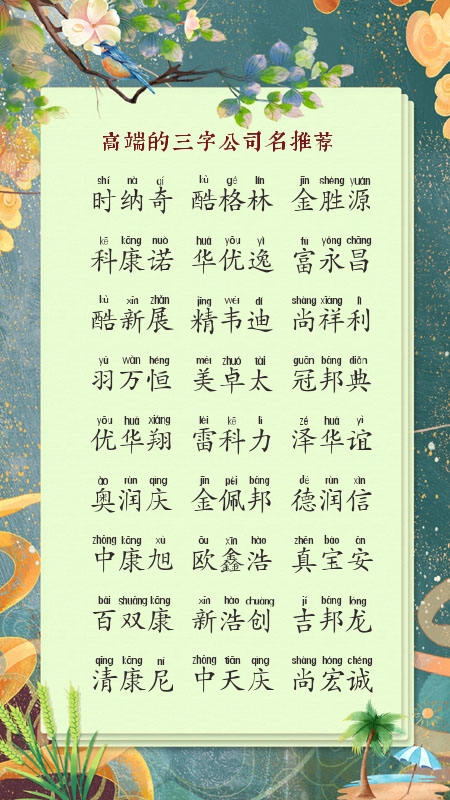 高端的三字公司名推荐
shí nà qí kù gé lín jīn shèng yuán
时纳奇 酷格林 金胜源
kē kāng nuò huá yōu yì fù yǒng chāng
科康诺 华优逸 富永昌
kù xīn zhǎn jīng wéi dí shàng xiáng lì
酷新展 精韦迪 尚祥利
yǔ wàn héng měi zhuó tài guān bāng diǎn
羽万恒 美卓太 冠邦典
yōu huá xiáng léi kē lì zé huá yì
优华翔 雷科力 泽华谊
ào rùn qìng jīn pèi bāng dé rùn xìn
奥润庆 金佩邦 德润信
zhōng kāng xù ōu xīn hào zhēn bǎo ān
中康旭 欧鑫浩 真宝安
bǎi shuāng kāng xīn hào chuàng jí bāng lóng
百双康 新浩创 吉邦龙
qīng kāng ní zhōng tiān qìng shàng hóng chéng
清康尼 中天庆 尚宏诚